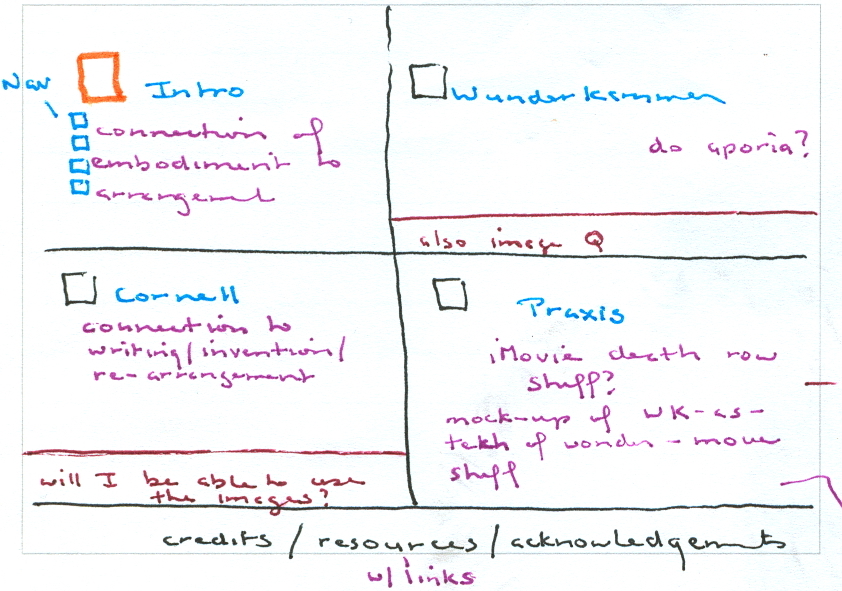 Nav
Intro
connection of
embodiment to
arrangemt
Wunderkammer
do aporia?
also image Q
Cornell
connection to
writing/invention/
re-arrangement
will I be able to use
the images?
Praxis
iMovie death row
stuff?
mock-up of WK-as-
tekh of wonder - move
stuff
credits / resources / acknowledgements
w/ links